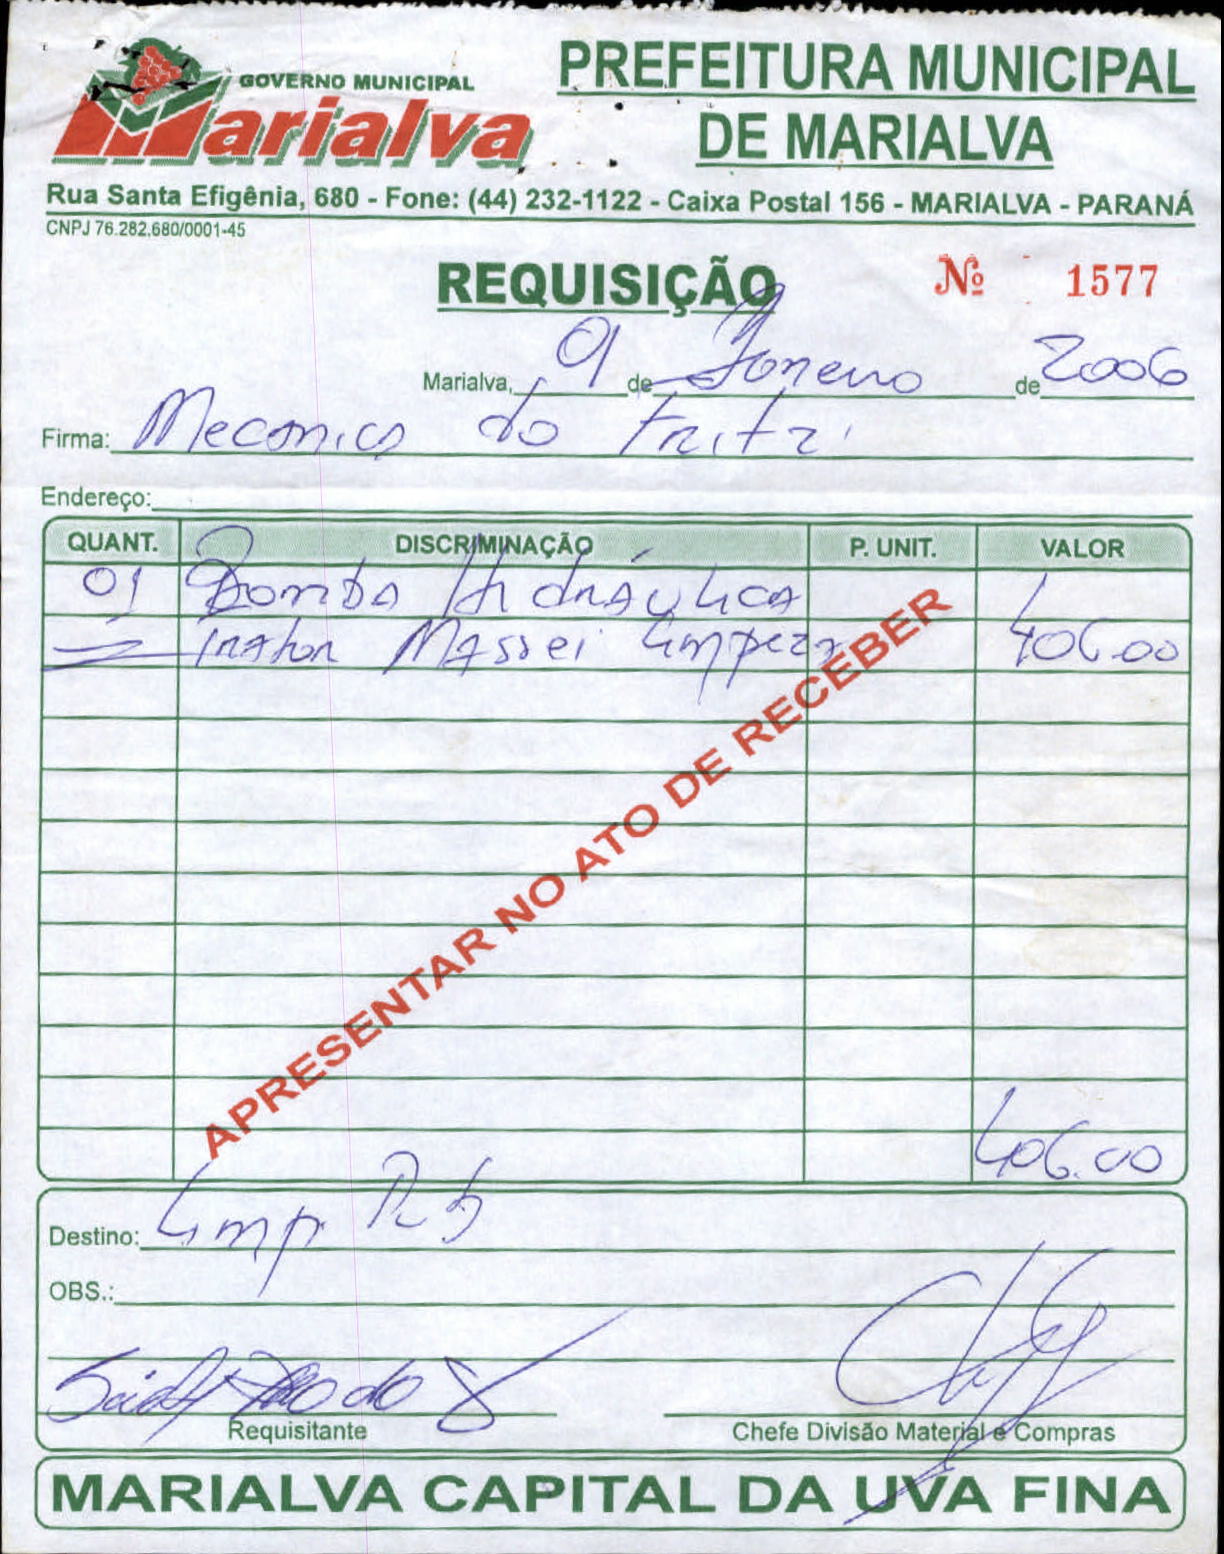 GOVERNO MUNICIPAL
Marialva
PREFEITURA MUNICIPAL
DE MARIALVA
Rua Santa Efigênia, 680 - Fone: (44) 232-1122 - Caixa Postal 156 - MARIALVA - PARANÁ
CNPJ 76.282.680/0001-45
REQUISIÇÃO Nº 1577
Marialva, 9 de Janeiro de 2006
Firma: Mecanica do Fritz
Endereço:
QUANT. DISCRIMINAÇÃO P. UNIT. VALOR
01 Bomba Hidráulica
trator Massei Limpeza 406.00
APRESENTAR NO ATO DE RECEBER
406.00
Destino: Limp Pub
OBS.:
Requisitante Chefe Divisão Material e Compras
MARIALVA CAPITAL DA UVA FINA